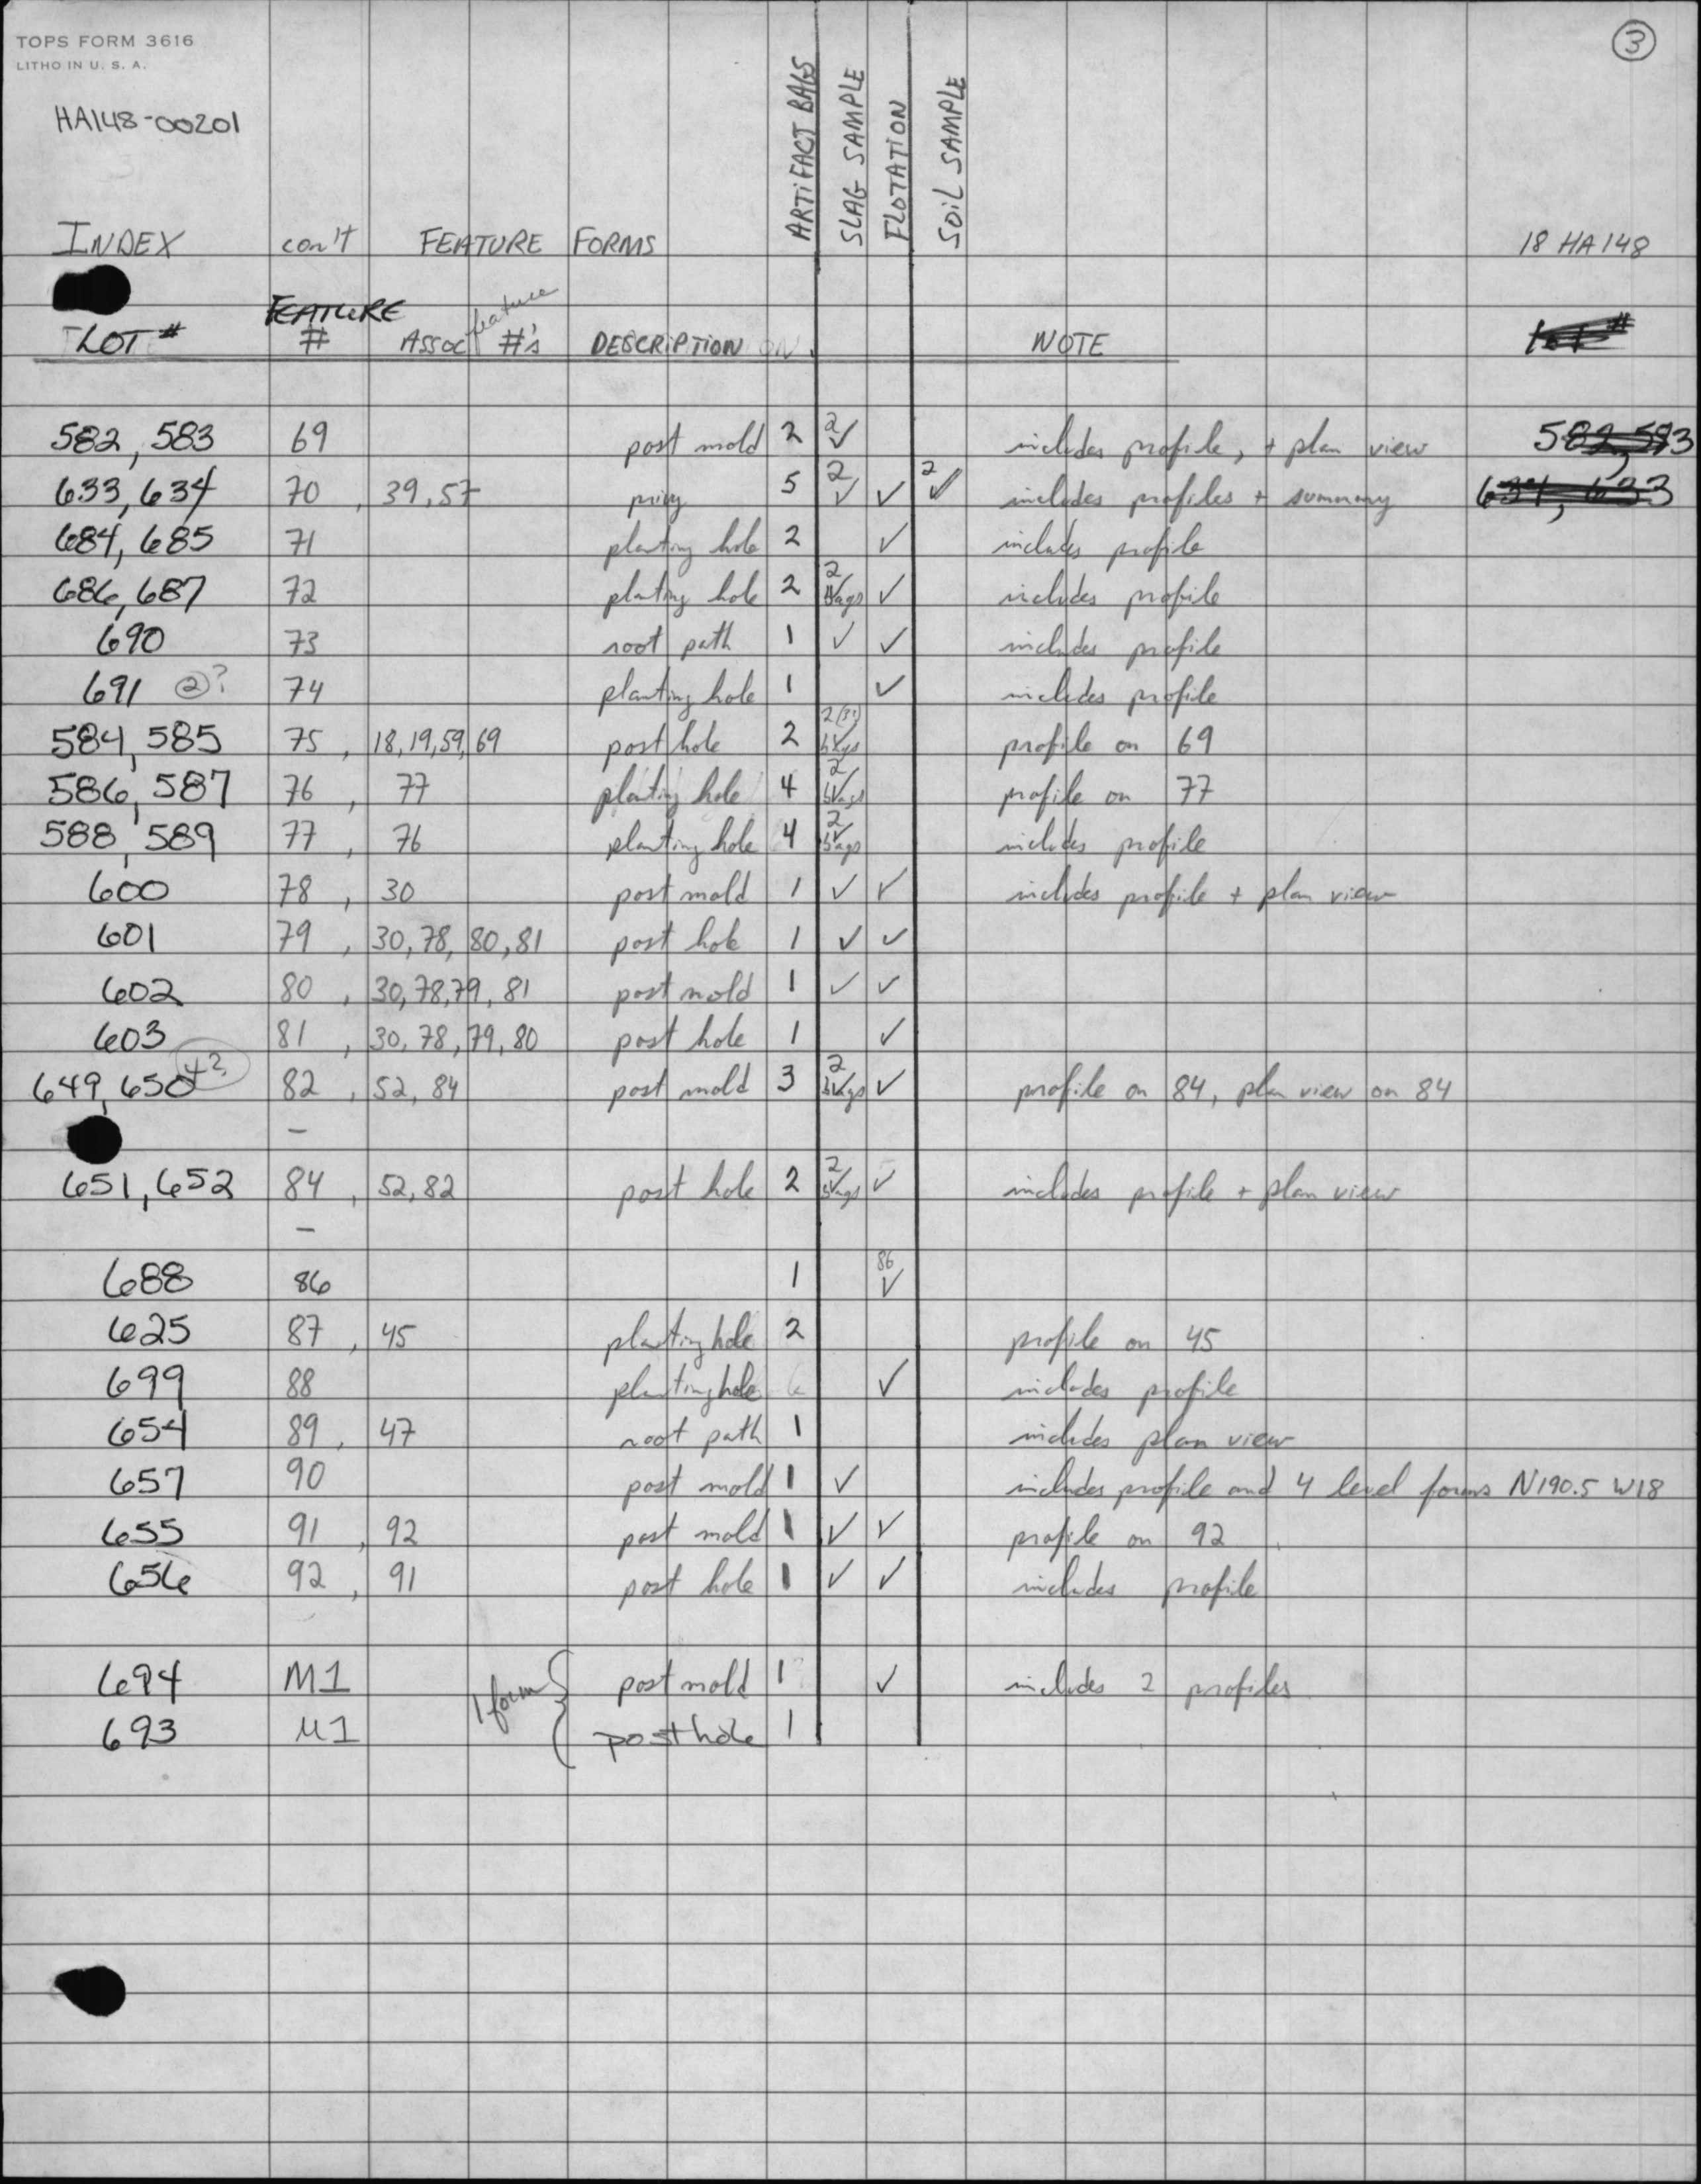 TOPS FORM 3616
LITHO IN U. S. A.
③
HA148-00201
ARTIFACT BAGS
SLAG SAMPLE
FLOTATION
SOIL SAMPLE
INDEX con't FEATURE FORMS 18 HA 148
LOT # FEATURE # ASSOC feature #'s DESCRIPTION NOTE lot #
582, 583 69 post mold 2 2 ✓ includes profile, + plan view 582, 583
633, 634 70, 39, 57 privy 5 2 ✓ ✓ 2 ✓ includes profiles + summary 634, 633
684, 685 71 planting hole 2 ✓ includes profile
686, 687 72 planting hole 2 2 bags ✓ includes profile
690 73 root path 1 ✓ ✓ includes profile
691 ②? 74 planting hole 1 ✓ includes profile
584, 585 75, 18, 19, 59, 69 post hole 2 2 (??) bags profile on 69
586, 587 76, 77 planting hole 4 2 bags profile on 77
588, 589 77, 76 planting hole 4 2 bags includes profile
600 78, 30 post mold 1 ✓ ✓ includes profile + plan view
601 79, 30, 78, 80, 81 post hole 1 ✓ ✓
602 80, 30, 78, 79, 81 post mold 1 ✓ ✓
603 81, 30, 78, 79, 80 post hole 1 ✓
649, 650 4? 82, 52, 84 post mold 3 2 bags ✓ profile on 84, plan view on 84
—
651, 652 84, 52, 82 post hole 2 2 bags ✓ includes profile + plan view
—
688 86 1 86 ✓
625 87, 45 planting hole 2 profile on 45
699 88 planting hole ✓ includes profile
654 89, 47 root path 1 includes plan view
657 90 post mold 1 ✓ includes profile and 4 level forms N190.5 W18
655 91, 92 post mold 1 ✓ ✓ profile on 92
656 92, 91 post hole 1 ✓ ✓ includes profile
694 M1 1 form { post mold 1 ✓ includes 2 profiles
693 M1 post hole 1